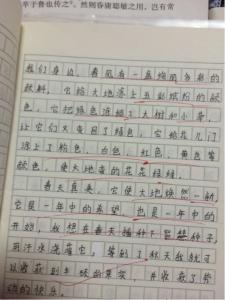 卒于鲁也传之。然则昏庸聪敏之用，岂有常
我们身边，春风有一盒绚丽多彩的
颜料，它给大地涂上五彩缤纷的颜
色，它把绿色涂给了大树和小草，
让它们又变回了绿色，它给花儿们
涂上了粉色、白色、红色、黄色等
颜色，使大地变的花花绿绿。
春天真美，它使大地焕然一新，
它是一年中的希望，也是一年中的
开始，我想在春天播种下 种子，
用汗水浇灌它，等到了秋天我就可
以收获到 的果实，并收获了劳
动的快乐。